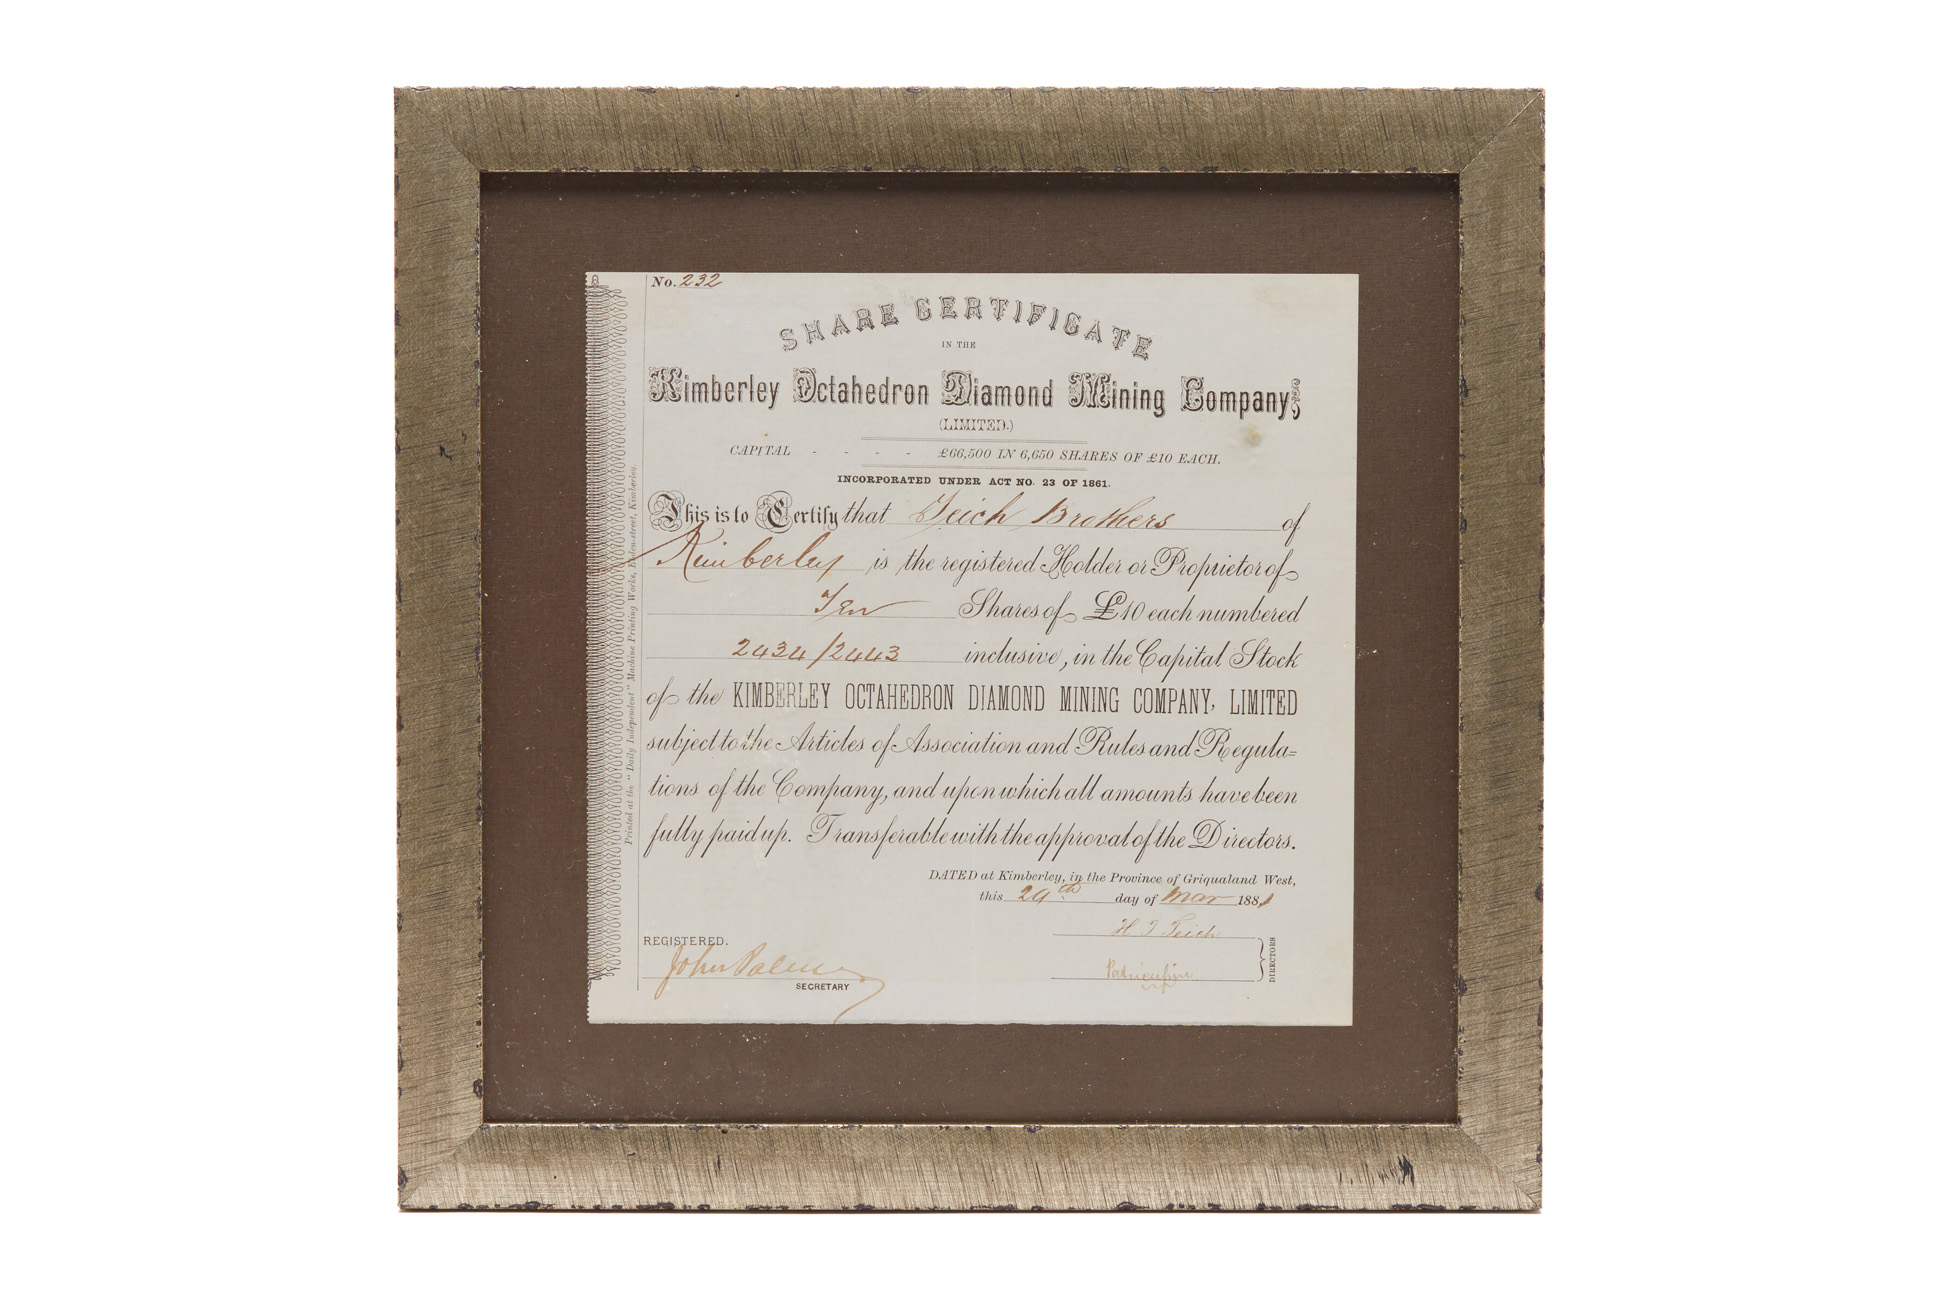 No. 232
SHARE CERTIFICATE
IN THE
Kimberley Octahedron Diamond Mining Company,
(LIMITED.)
CAPITAL - - - - £66,500 IN 6,650 SHARES OF £10 EACH.
INCORPORATED UNDER ACT NO. 23 OF 1861.
This is to Certify that Teich Brothers of
Kimberley is the registered Holder or Proprietor of
Ten Shares of £10 each numbered
2434/2443 inclusive, in the Capital Stock
of the KIMBERLEY OCTAHEDRON DIAMOND MINING COMPANY, LIMITED
subject to the Articles of Association and Rules and Regula=
tions of the Company, and upon which all amounts have been
fully paid up. Transferable with the approval of the Directors.
DATED at Kimberley, in the Province of Griqualand West,
this 29th day of Mar 1881
H T Teich
REGISTERED.
John
SECRETARY
DIRECTORS
Printed at the "Daily Independent" Machine Printing Works, Kimberley.